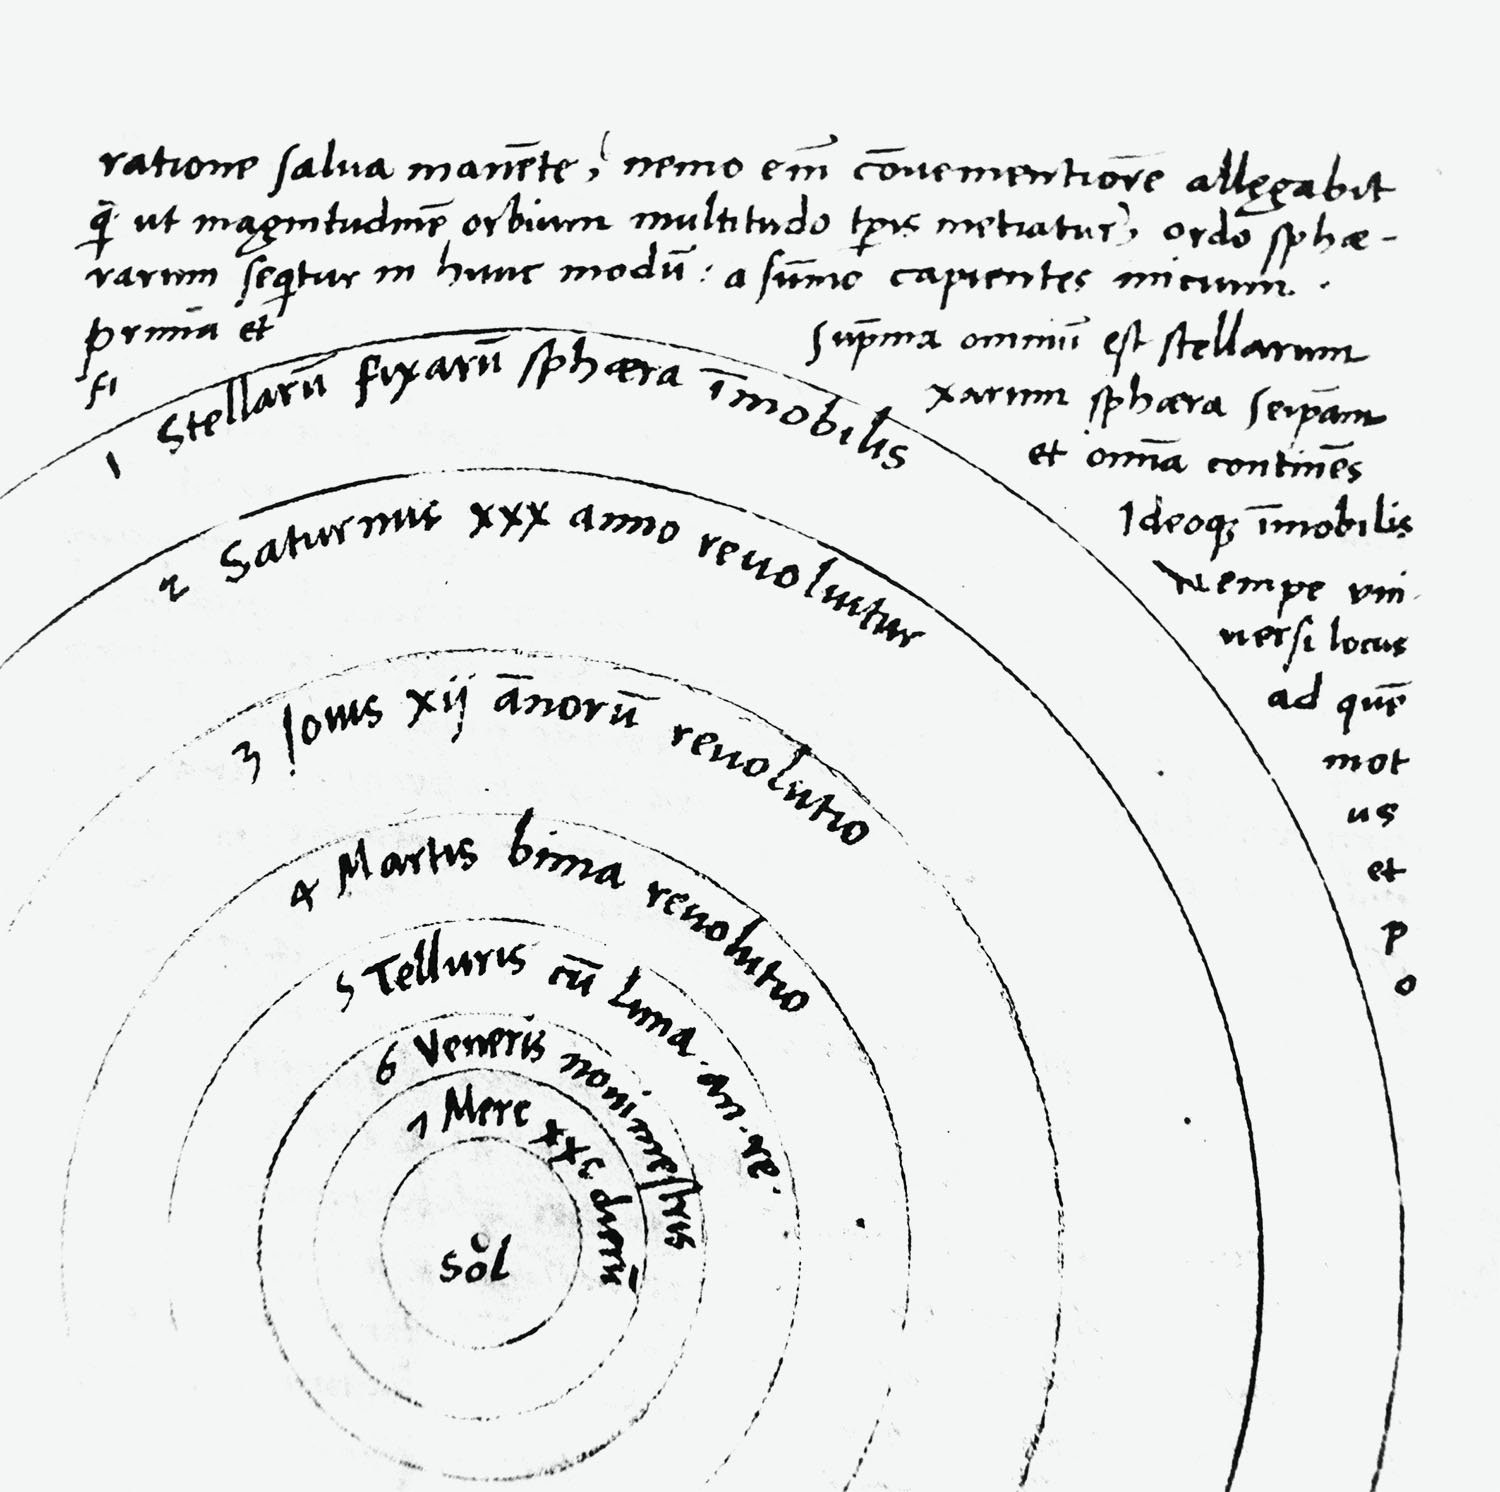 ratione salua manēte, nemo em̄ cōuenientiorē allegabit
q̄ ut magnitudinē orbium multitudo tp̄is metiatur, ordo sphæ-
rarum seqtur in hunc modū: a sūmo capientes inicium.
prima et Sup̄ma omniū est stellarum
fi xarum sphæra seip̄am
et om̄ia continēs
Ideoq; īmobilis
Nempe vni
uersi locus
ad quē
mot
us
et
p
o
1 Stellarū fixarū sphæra īmobilis
2 Saturnus xxx anno reuoluitur
3 Iouis xij ānorū reuolutio
4 Martis bima reuolutio
5 Telluris cū luna . an . re .
6 Veneris nonimestris
7 Merc xxc dierū
Sol